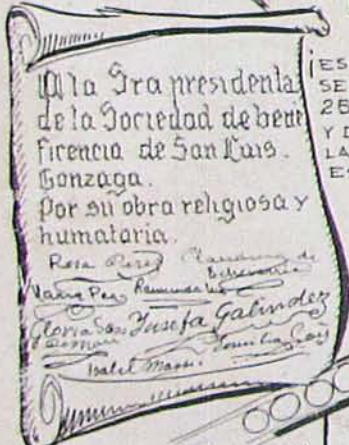 A la Sra presidenta
de la Sociedad de bene
ficencia de San Luis
Gonzaga.
Por su obra religiosa y
humataria.
Rosa Perez Claudina de
Echevarria
María Paz Raimunda
Gloria Sans Josefa Galindez
Isabel
¡ES
SE
25
Y D
LA
ES